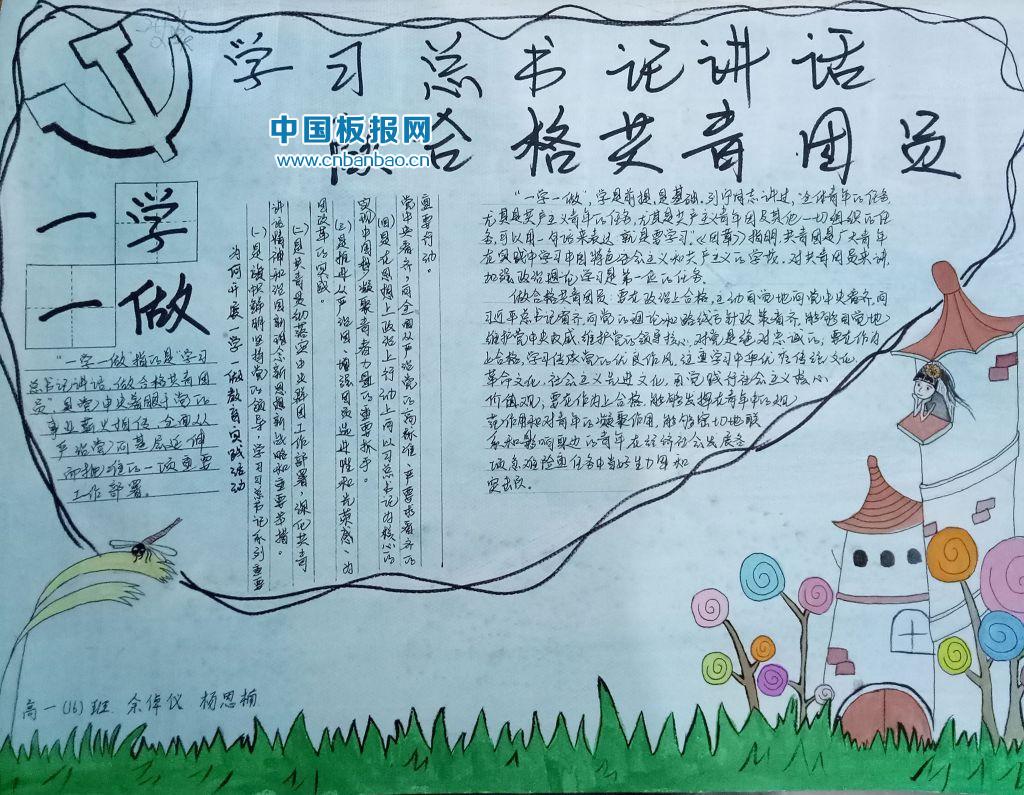 学习总书记讲话
做合格共青团员
中国板报网
www.cnbanbao.cn
一学
一做
"一学一做"指的是"学习
总书记讲话,做合格共青团
员",是党中央着眼于党的
事业薪火相传,全面从
严治党向基层延伸
而抓准的一项重要
工作部署。
为何开展一学一做教育实践活动
(一)是旗帜鲜明坚持党的领导,学习习总书记系列重要
讲话精神和治国新理念新思想新战略和主要举措。
(二)是共青是动落实中央群团工作部署,深化共青
团改革的实践。
(三)是推进从严治团、增强团员先进性和光荣感、为
实现中国梦凝聚青春力量的重要抓手。
(四)是在思想上政治上行动上向以习总书记为核心的
党中央看齐,向全面从严治党的高标准、严要求看齐的
重要行动。
"一学一做",学是前提,是基础。列宁同志讲过,"全体青年的任务,
尤其是共产主义青年的任务,尤其是共产主义青年团及其他一切组织的任
务,可以用一句话来表达,就是要学习"。《团章》指明,共青团是广大青年
在实践中学习中国特色社会主义和共产主义的学校。对共青团员来讲,
加强政治理论学习是第一位的任务。
做合格共青团员:要在政治上合格,主动自觉地向党中央看齐,向
习近平总书记看齐,向党的理论和路线方针政策看齐,能够自觉地
维护党中央权威,维护党的领导核心,对党是绝对忠诚的;要在作为
上合格,学习传承党的优良作风,注重学习中华优秀传统文化,
革命文化,社会主义先进文化,自觉践行社会主义核心
价值观;要在作为上合格,能够发挥在青年中的模
范作用和对青年的凝聚作用,能够密切地联
系和影响联边的青年在经济社会发展各
项急难险重任务中当好生力军和
突击队。
高一(16)班 余倬仪 杨思楠